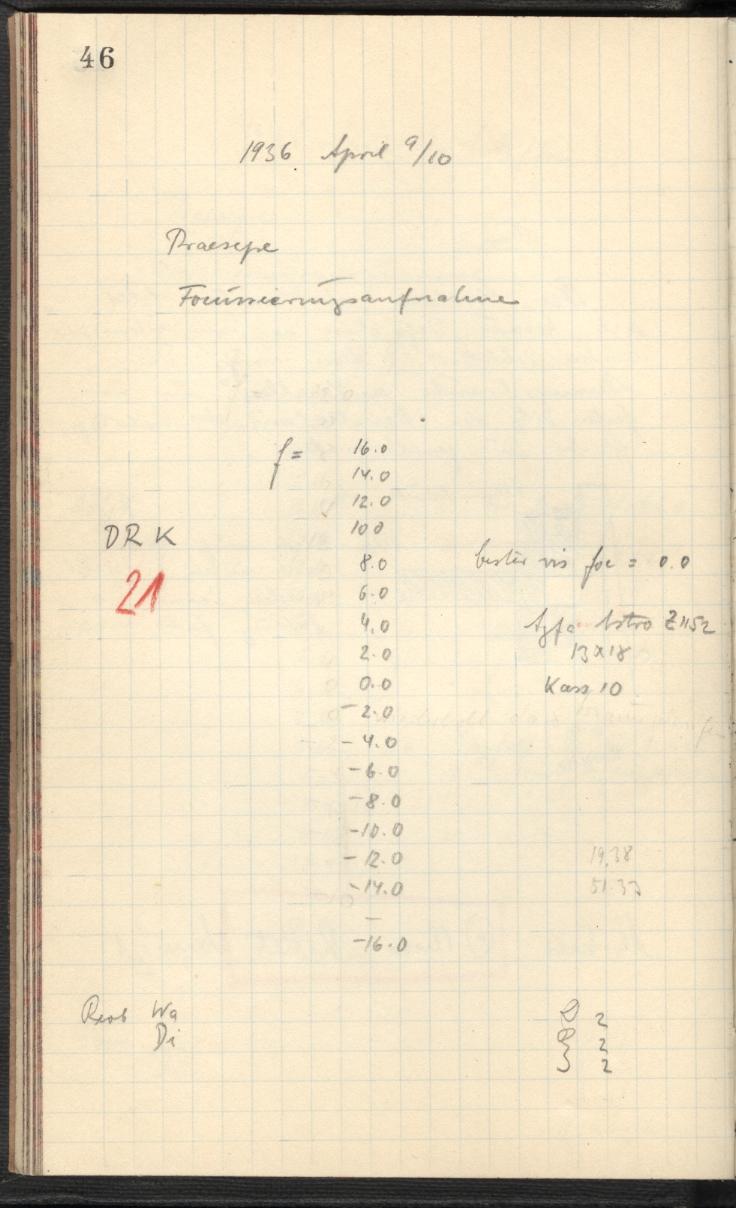 46
1936 April 9/10
Praesepe
Focussierungsaufnahme
f = 16.0
14.0
12.0
10 0
DRK
8.0
bester vis foc = 0.0
21
6.0
4.0
Agfa Astro Z 1152
2.0
13x18
0.0
Kass 10
-2.0
-4.0
-6.0
-8.0
-10.0
-12.0
19,38
-14.0
51.37
-
-16.0
Beob Wa
Di
2
2
2